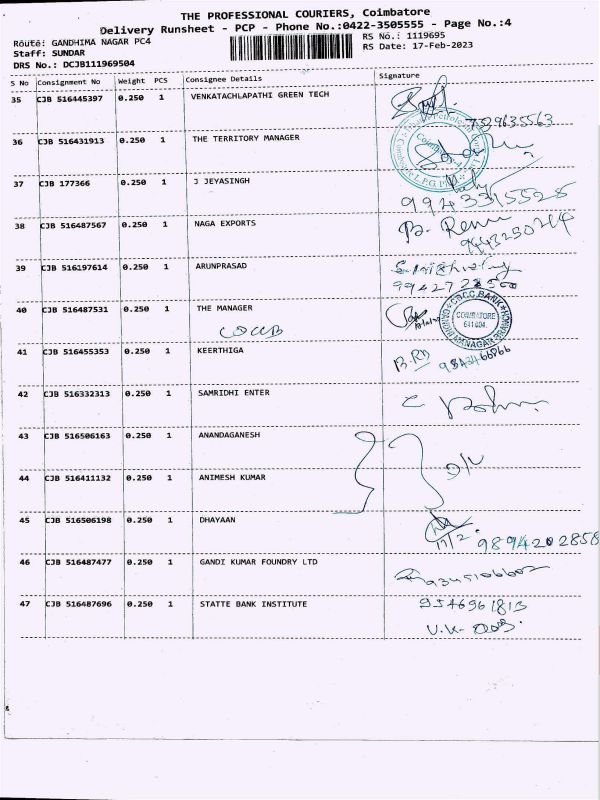 THE PROFESSIONAL COURIERS, Coimbatore
Delivery Runsheet - PCP - Phone No.:0422-3505555 - Page No.:4
Route: GANDHIMA NAGAR PC4
RS No.: 1119695
Staff: SUNDAR
RS Date: 17-Feb-2023
DRS No.: DCJB111969504
S No Consignment No Weight PCS Consignee Details Signature
35 CJB 516445397 0.250 1 VENKATACHLAPATHI GREEN TECH
7529635563
36 CJB 516431913 0.250 1 THE TERRITORY MANAGER
Coimbatore
37 CJB 177366 0.250 1 J JEYASINGH
9943315528
38 CJB 516487567 0.250 1 NAGA EXPORTS B. Renu
39 CJB 516197614 0.250 1 ARUNPRASAD
40 CJB 516487531 0.250 1 THE MANAGER
CDCC BANK
COIMBATORE
641004.
GANDHIMANAGAR BRANCH
41 CJB 516455353 0.250 1 KEERTHIGA
42 CJB 516332313 0.250 1 SAMRIDHI ENTER
43 CJB 516506163 0.250 1 ANANDAGANESH
D/L
44 CJB 516411132 0.250 1 ANIMESH KUMAR
45 CJB 516506198 0.250 1 DHAYAAN
17/2. 9894202858
46 CJB 516487477 0.250 1 GANDI KUMAR FOUNDRY LTD
9345106602
47 CJB 516487696 0.250 1 STATTE BANK INSTITUTE
V.K.